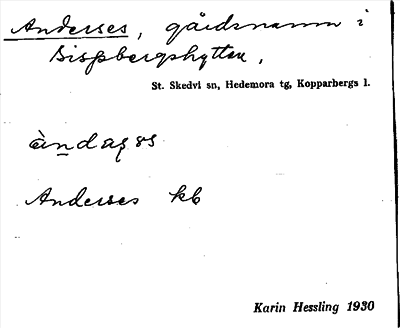 Anderses, gårdsnamn i
Bispbergshyttan.
St. Skedvi sn, Hedemora tg, Kopparbergs l.
Anderses kb
Karin Hessling 1930